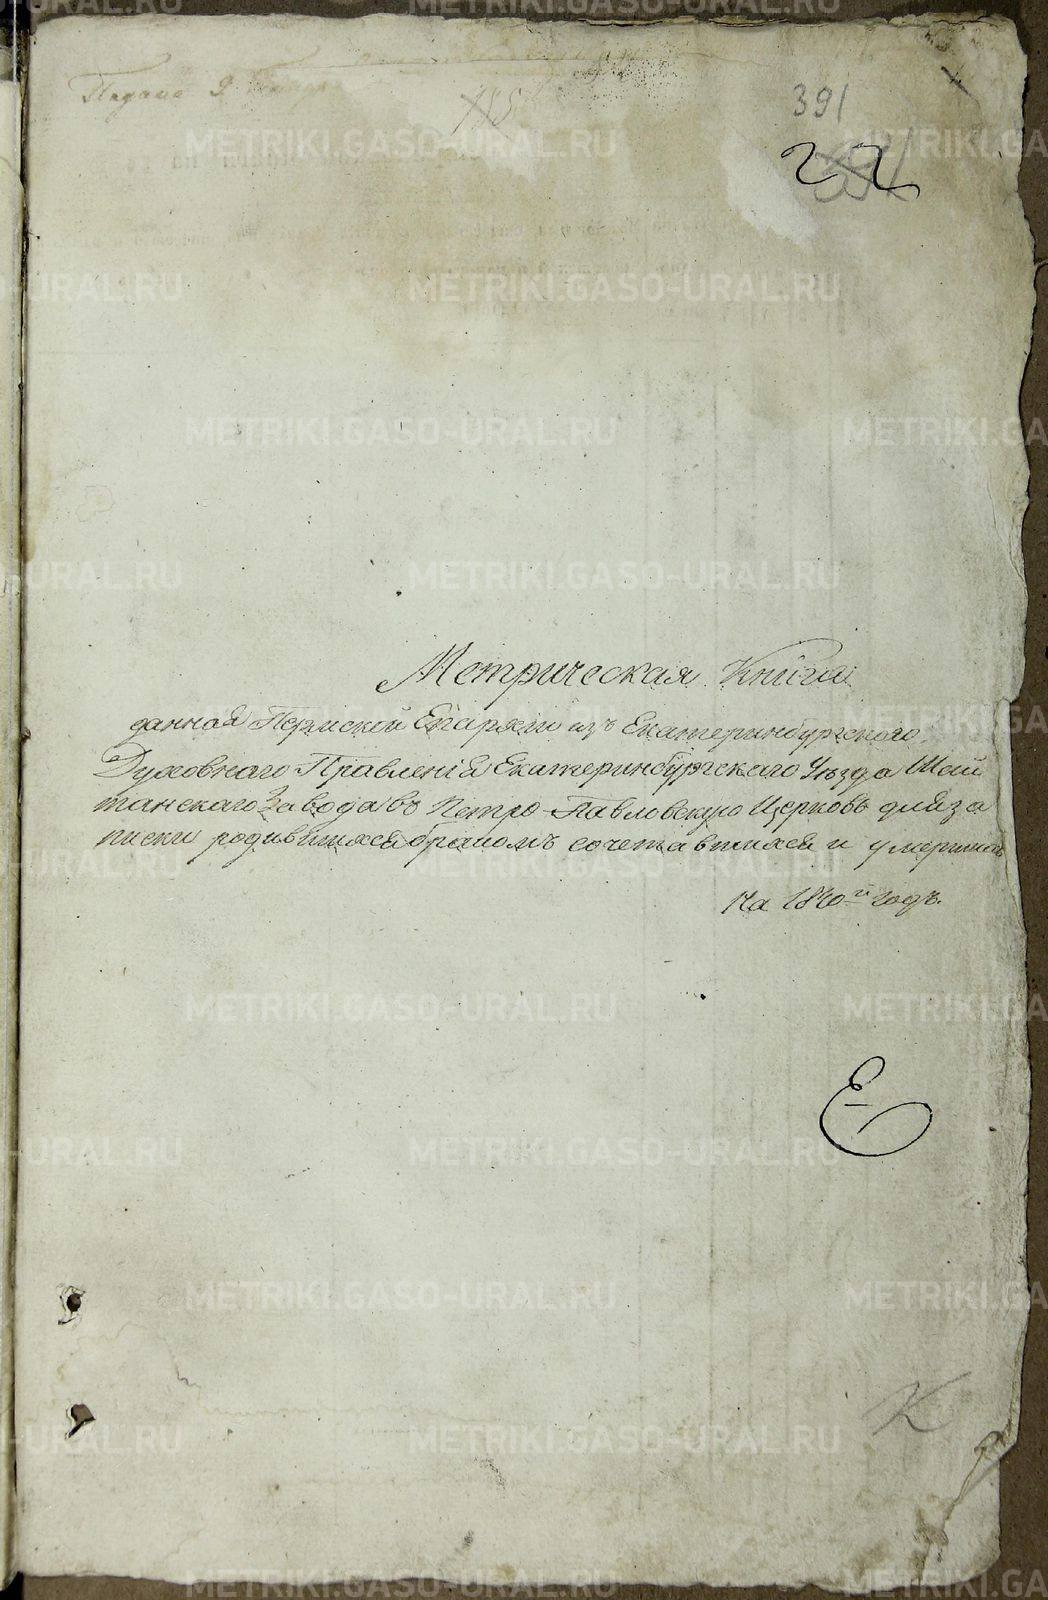 Подано 9
391
22
Метрическая Книга
данная Пермской Епархіи изъ Екатеринбургскаго
Духовнаго Правленія Екатеринбургскаго Уѣзда Шай
танскаго Завода въ Петро-Павловскую Церковь для за
писки родившихся бракомъ сочетавшихся и умершихъ
На 1840й годъ.
Е
К
METRIKI.GASO-URAL.RU